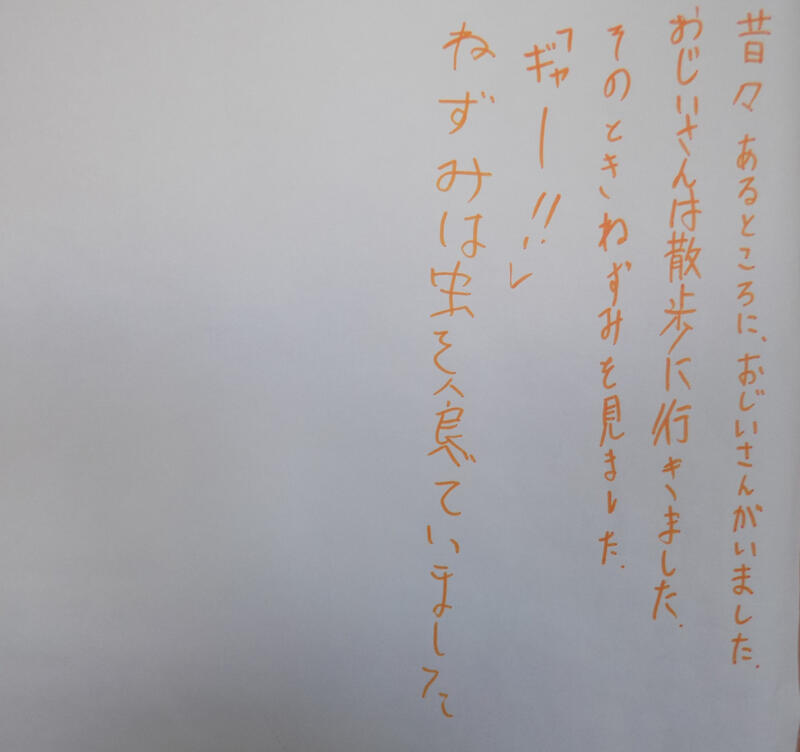 昔々あるところに、おじいさんがいました.
おじいさんは散歩に行きました.
そのときねずみを見ました.
「ギャー!!」
ねずみは虫を食べていました